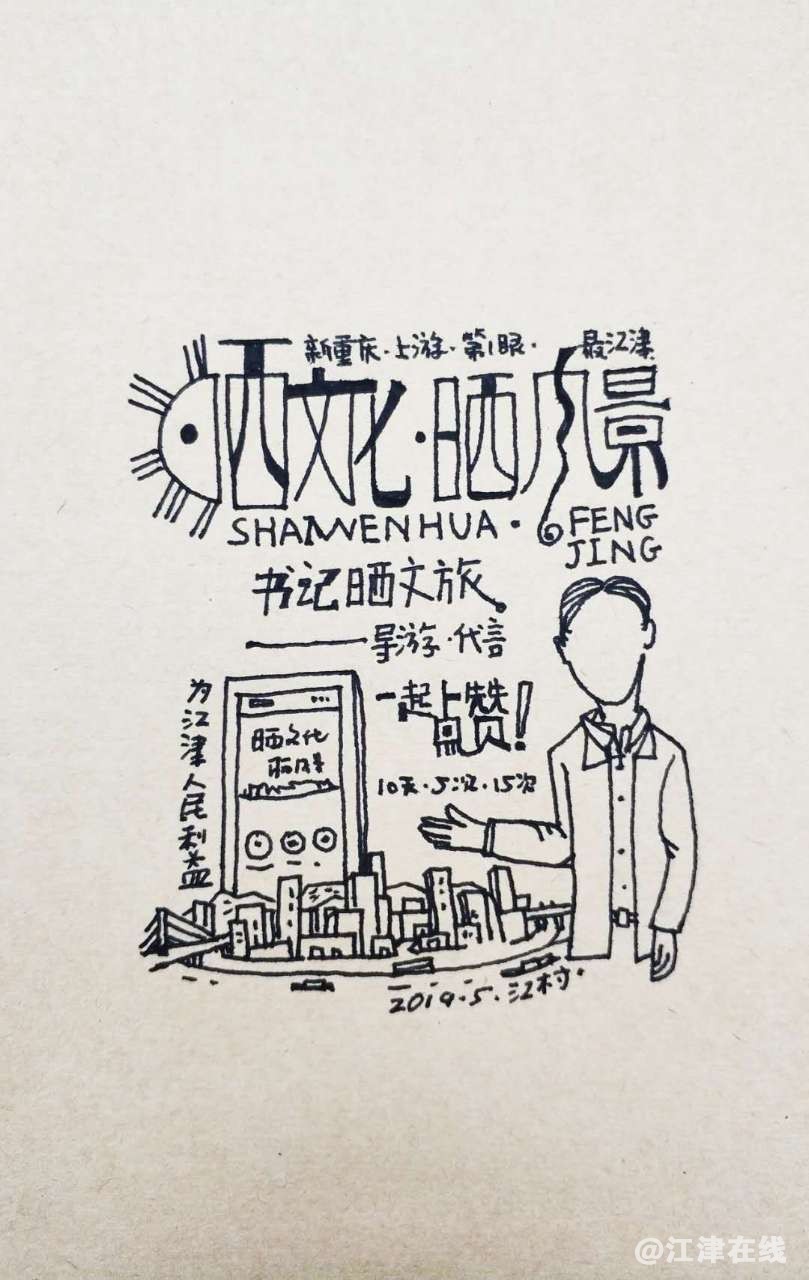 新重庆·上游·第1眼·最江津
晒文化·晒风景
SHAIWENHUA·FENG
JING
书记晒文旅。
——导游·代言
一起点赞!
10天·5次·15次
为江津人民利益
晒文化
晒风景
2019.5.江村.
@江津在线